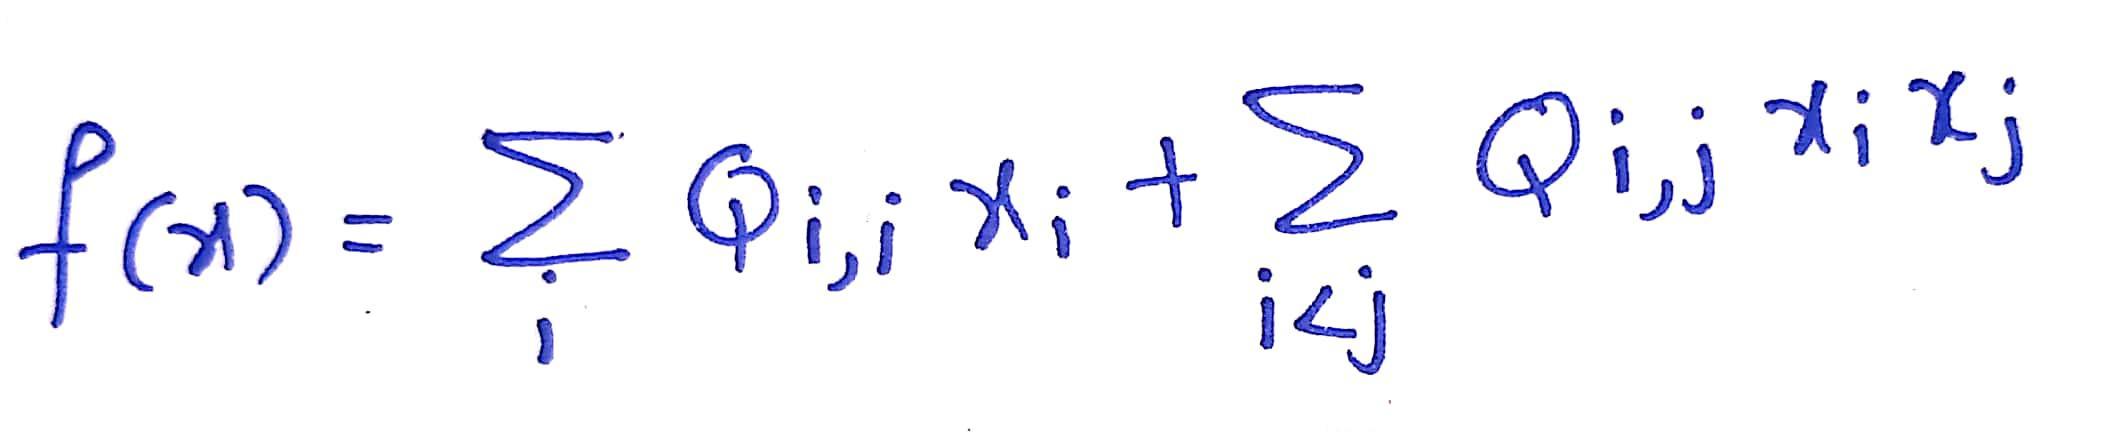 f(x) = ∑_i Q_{i,i} x_i + ∑_{i<j} Q_{i,j} x_i x_j